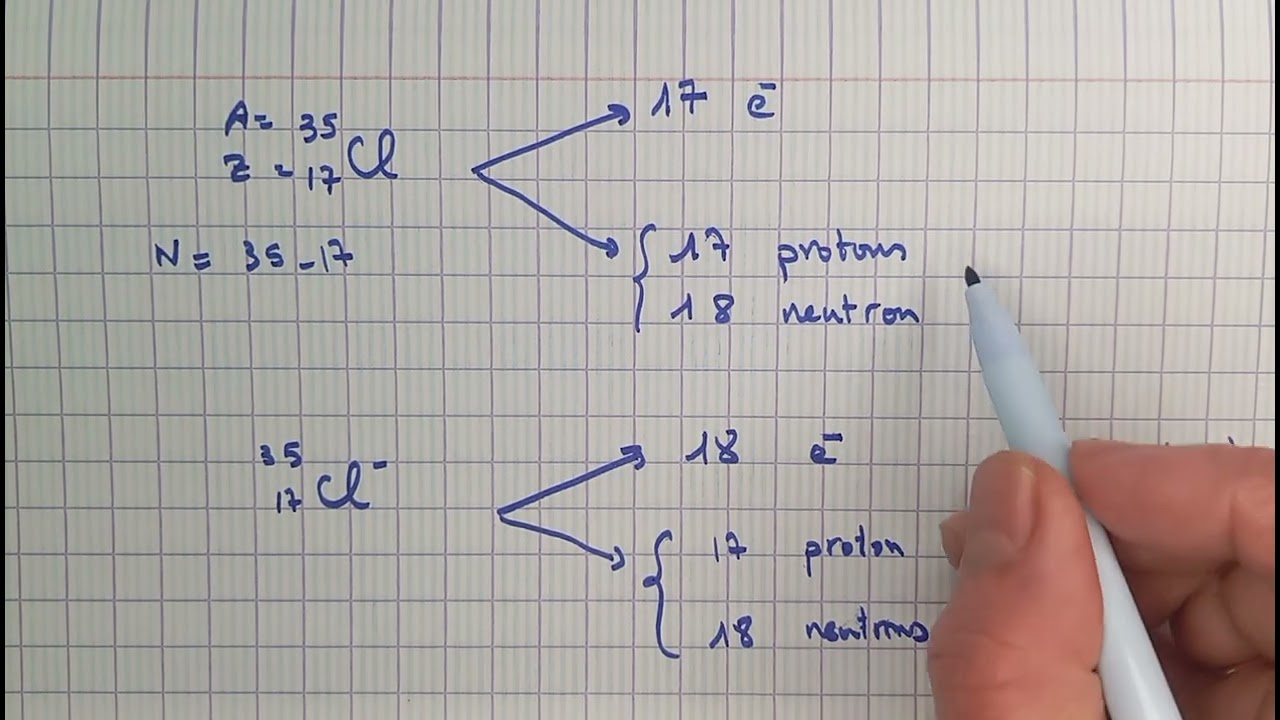 A= 35
Z = 17 Cl
17 e⁻
N = 35-17
17 protons
18 neutron
35
17 Cl⁻
18 e⁻
17 proton
18 neutrons